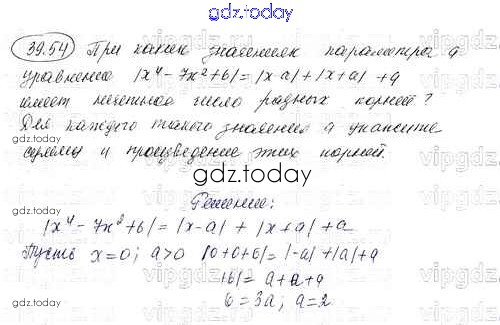 gdz.today
39.54 При каких значениях параметра a
уравнение |x⁴ - 7x² + 6| = |x-a| + |x+a| + a
имеет нечетное число разных корней?
Для каждого такого значения a укажите
сумму и произведение этих корней.
gdz.today
Решение:
|x⁴ - 7x² + 6| = |x-a| + |x+a| + a
Пусть x=0; a>0 |0+0+6| = |-a| + |a| + a
|6| = a+a+a
6 = 3a; a=2
gdz.today
gdz.today